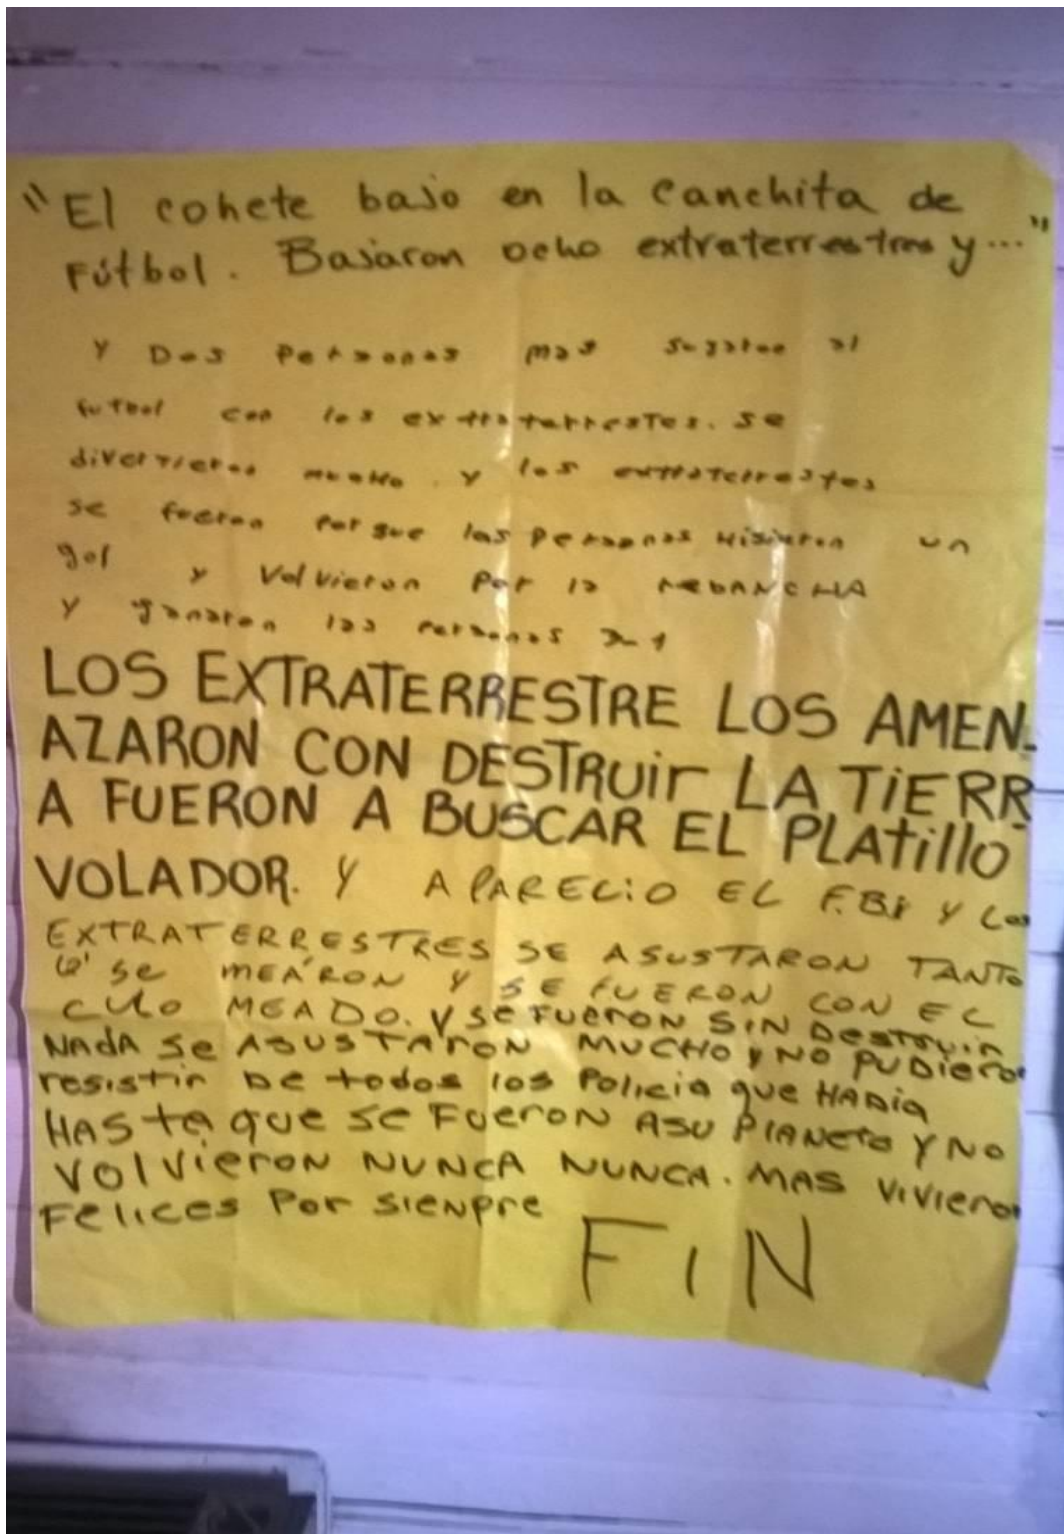 "El cohete bajo en la canchita de
Fútbol. Bajaron ocho extraterrestres y..."
y Dos Personas mas Jugaron al
futbol con los extraterrestes. se
divertieron mucho y los extraterrestes
se fueron Por que las Personas Hisieron un
gol y Volvieron Por la REBANCHA
y ganaron las Personas 2-1
LOS EXTRATERRESTRE LOS AMEN-
AZARON CON DESTRUir LA TiERR
A FUERON A BUSCAR EL PLAtillo
VOLADOR. Y APARECiO EL F.Bi Y Los
EXTRATERRESTRES SE ASUSTARON TANTO
Q' SE MEARON Y SE FUERON CON EL
CULO MEADO. Y SE FUERON SIN DESTRUIR
NADA SE ASUSTARON MUCHO Y NO PUDIERON
resistir DE todos los Policia que HABIA
HASta que SE FUERON ASU PlANETA Y NO
VOlViERON NUNCA NUNCA. MAS ViViERON
FELICES POR SIENPRE
FIN